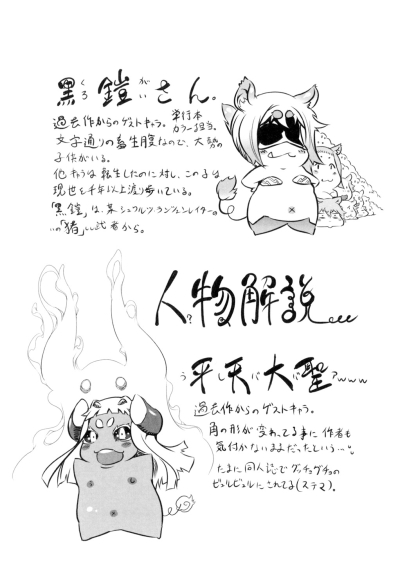 黒鎧さん。
くろ がい
過去作からのゲストキャラ。単行本カラー担当。
文字通りの畜生腹なので、大勢の
子作がいる。
他キャラは転生したのに対し、この子は
現世を千年以上渡り歩いている。
「黒鎧」は、某シュワルツ・ランツェンレイター。
「猪」
から。
人物解説
平天大聖
www
過去作からのゲストキャラ。
角の形が変わってる事に作者も
気付かないままだったという…
たまに同人誌でグッチョグチョの
ビュルビュルにされてる(ステマ)。